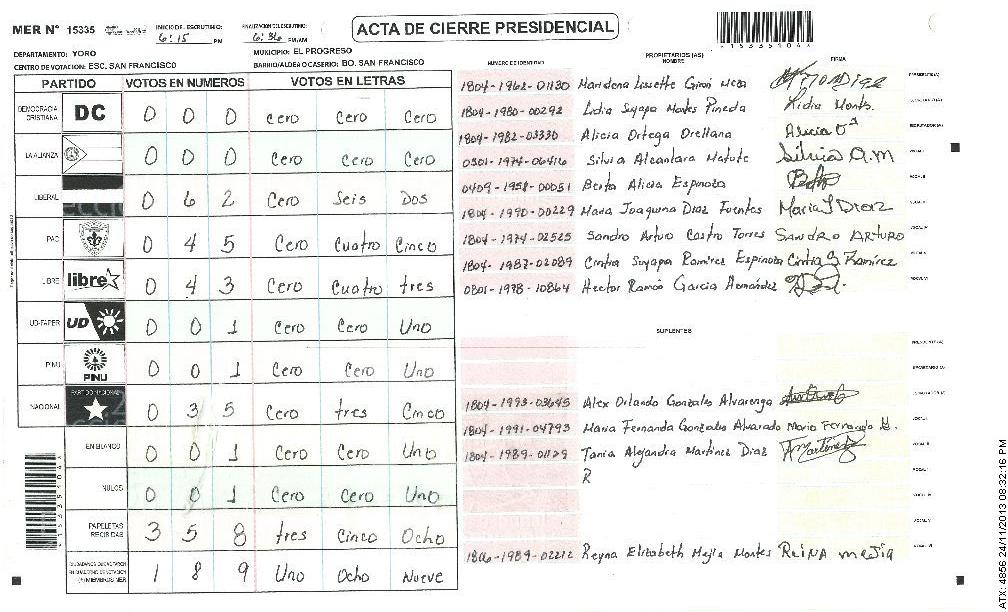 MER Nº 15335 INICIO DE ESCRUTINIO: 6:15 PM FINALIZACION DE ESCRUTINIO: 6:36 PM/AM
ACTA DE CIERRE PRESIDENCIAL
*15335104*
DEPARTAMENTO: YORO MUNICIPIO: EL PROGRESO
CENTRO DE VOTACION: ESC. SAN FRANCISCO BARRIO/ALDEA O CASERIO: BO. SAN FRANCISCO
PARTIDO VOTOS EN NUMEROS VOTOS EN LETRAS
DEMOCRACIA CRISTIANA DC 0 0 0 Cero Cero Cero
LA ALIANZA 0 0 0 Cero Cero Cero
LIBERAL 0 6 2 Cero Seis Dos
PAC 0 4 5 Cero Cuatro Cinco
LIBRE libre 0 4 3 Cero Cuatro tres
UD-FAPER UD 0 0 1 Cero Cero Uno
PINU PINU 0 0 1 Cero Cero Uno
NACIONAL PARTIDO NACIONAL 0 3 5 Cero tres Cinco
EN BLANCO 0 0 1 Cero Cero Uno
NULOS 0 0 1 Cero Cero Uno
PAPELETAS RECIBIDAS 3 5 8 tres Cinco Ocho
1 8 9 Uno Ocho Nueve
NUMERO DE IDENTIDAD PROPIETARIOS (AS) NOMBRE FIRMA
1804-1962-01130 Lissette Giron Meza
1804-1980-00292 Lidia Suyapa Montes Pineda Lidia Monts.
1804-1982-03330 Alicia Ortega Orellana Alicia O
0301-1974-06416 Silvia Alcantara Matute Silvia A.M
0409-1958-00051 Berta Alicia Espinoza
1804-1990-00229 Maria Joaquina Diaz Fuentes Maria J Diaz
1804-1974-02525 Sandro Arturo Castro Torres SANDRO ARTURO
1804-1987-02089 Cintia Suyapa Ramirez Espinoza Cintia S Ramirez
0801-1978-10864 Hector Ramon Garcia Hernández
SUPLENTES
1804-1993-03645 Alex Orlando Gonzales Alvarenga
1804-1991-04793 Maria Fernanda Gonzales Alvarado Maria Fernanda G.
1804-1989-01129 Tania Alejandra Martinez Diaz Martinez
R
1806-1989-02212 Reyna Elizabeth Mejia Montes REiNA mejia
*15335104*
ATX: 4856 24/11/2013 08:32:16 PM